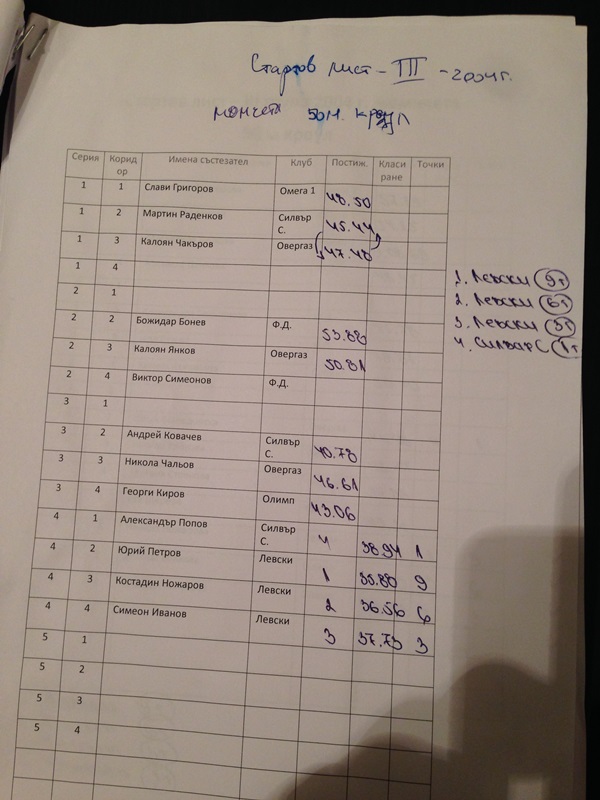 Стартов лист - III - 2004г.
момчета 50м. кроул
Серия Коридор Имена състезател Клуб Постиж. Класиране Точки
1 1 Слави Григоров Омега 1 48.50
1 2 Мартин Раденков Силвър С. 45.44
1 3 Калоян Чакъров Овергаз 47.48
1 4
2 1
2 2 Божидар Бонев Ф.Д. 53.88
2 3 Калоян Янков Овергаз 50.81
2 4 Виктор Симеонов Ф.Д.
3 1
3 2 Андрей Ковачев Силвър С. 40.78
3 3 Никола Чальов Овергаз 46.61
3 4 Георги Киров Олимп 43.06
4 1 Александър Попов Силвър С. 4 38.94 1
4 2 Юрий Петров Левски 1 35.88 9
4 3 Костадин Ножаров Левски 2 36.56 6
4 4 Симеон Иванов Левски 3 37.73 3
5 1
5 2
5 3
5 4
1. Левски 9т
2. Левски 6т
3. Левски 3т
4. Силвър С 1т